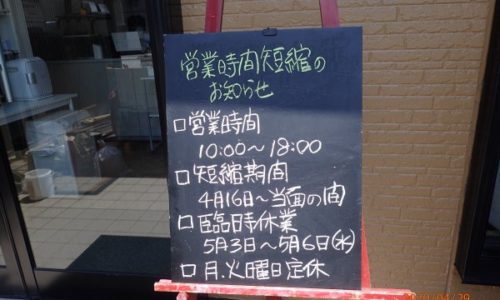 営業時間短縮の
お知らせ
□営業時間
10:00～18:00
□短縮期間
4月16日～当面の間
□臨時休業
5月3日～5月6日(水)
□月.火曜日定休